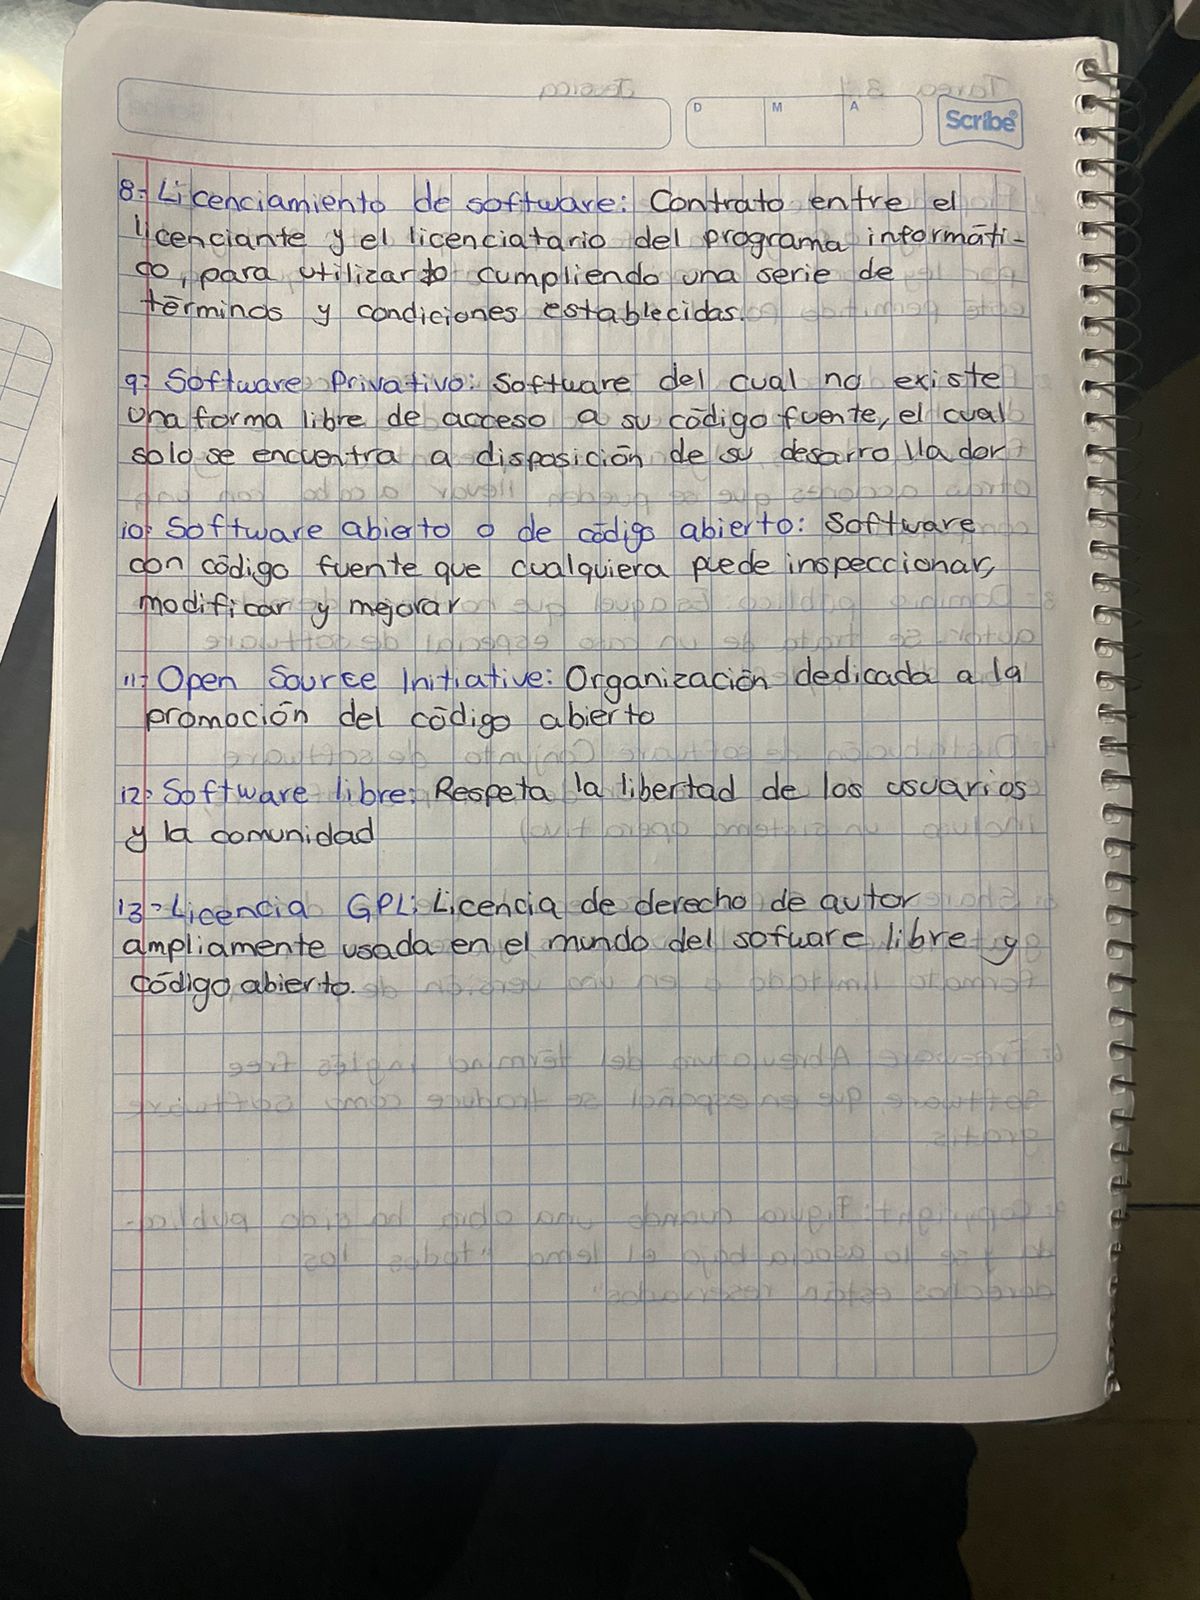 D M A
Scribe
8.- Licenciamiento de software: Contrato entre el
licenciante y el licenciatario del programa informáti-
co, para utilizarlo cumpliendo una serie de
términos y condiciones establecidas.
9.- Software Privativo: Software del cual no existe
una forma libre de acceso a su código fuente, el cual
solo se encuentra a disposición de su desarrollador
10.- Software abierto o de código abierto: Software
con código fuente que cualquiera puede inspeccionar,
modificar y mejorar
11.- Open Source Initiative: Organización dedicada a la
promoción del código abierto
12.- Software libre: Respeta la libertad de los usuarios
y la comunidad
13.- Licencia GPL: Licencia de derecho de autor
ampliamente usada en el mundo del sofware libre y
código abierto.